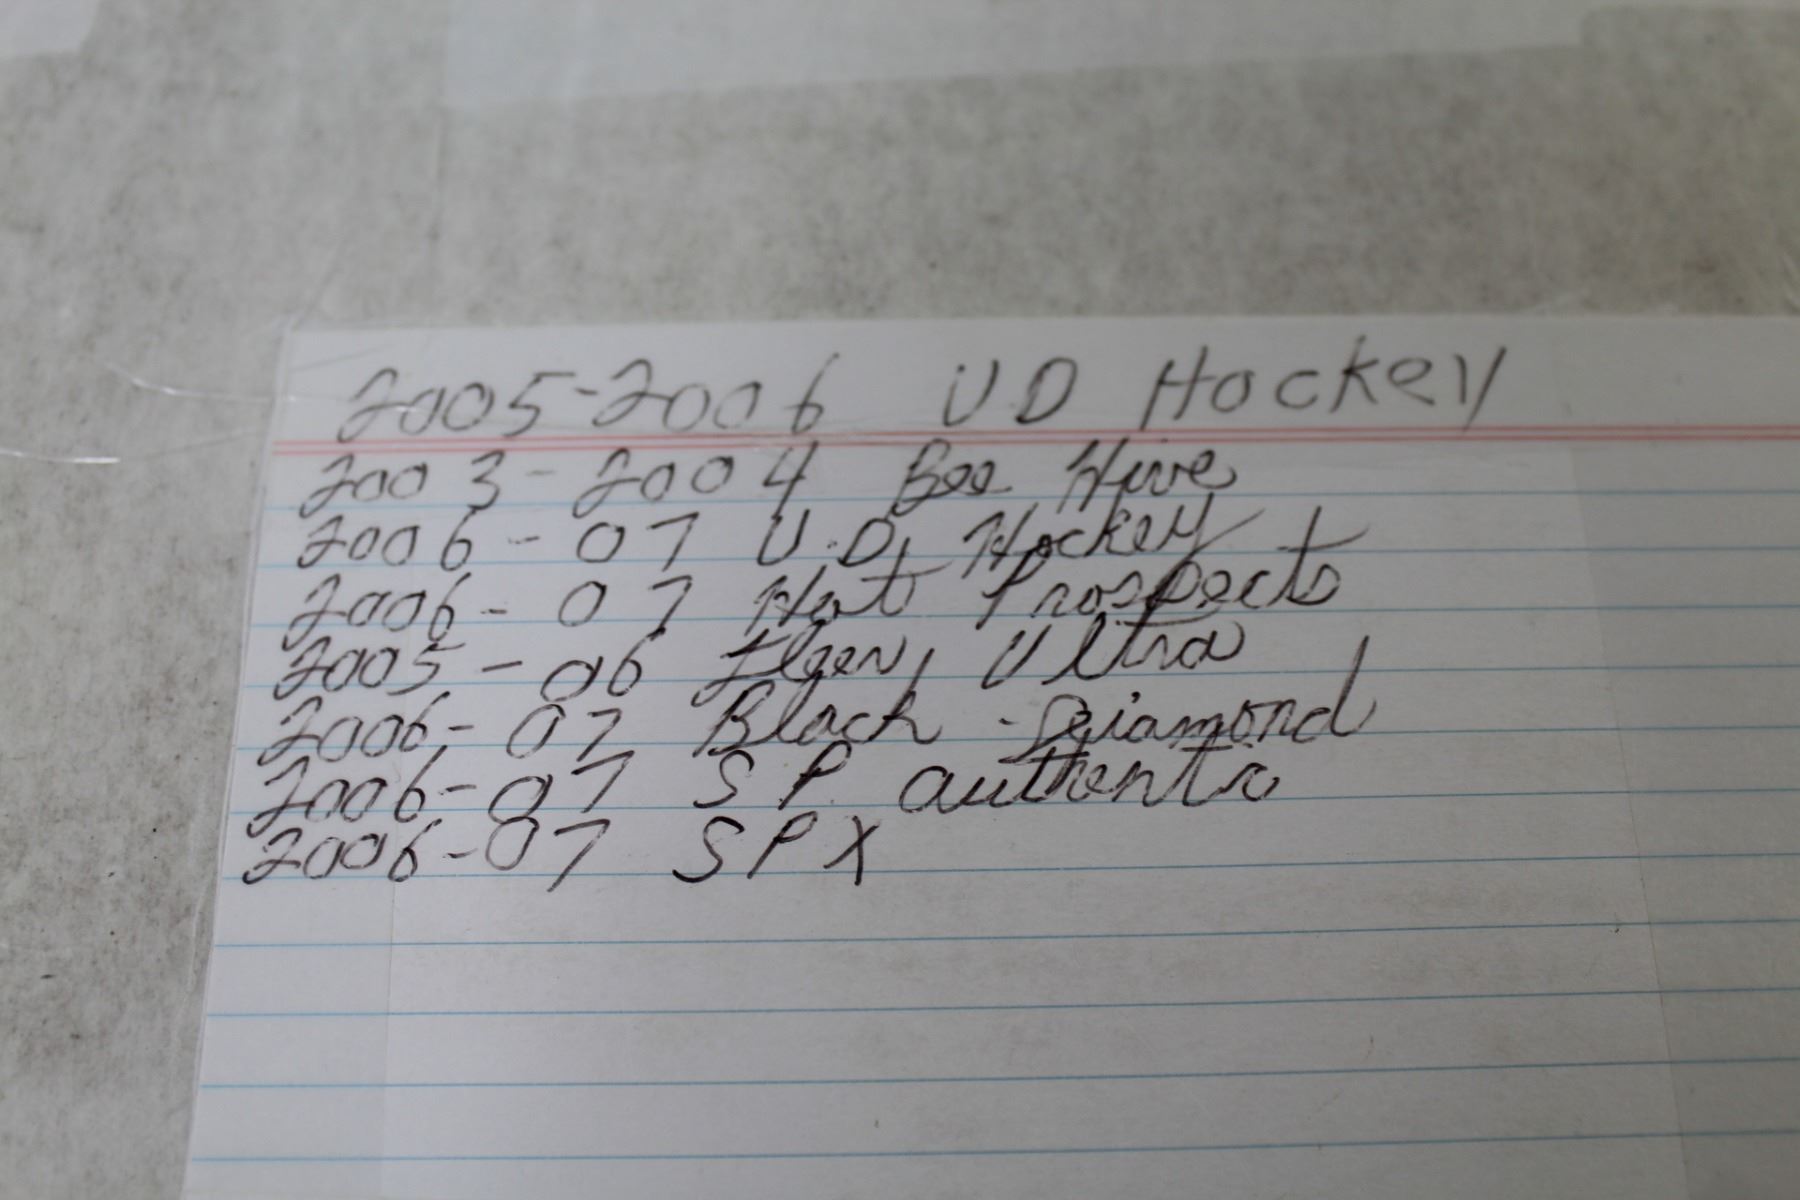 2005-2006 UD Hockey
2003-2004 Bee Hive
2006-07 U.D. Hockey
2006-07 Hot Prospects
2005-06 Fleer Ultra
2006-07 Black Diamond
2006-07 SP authentic
2006-07 SPX